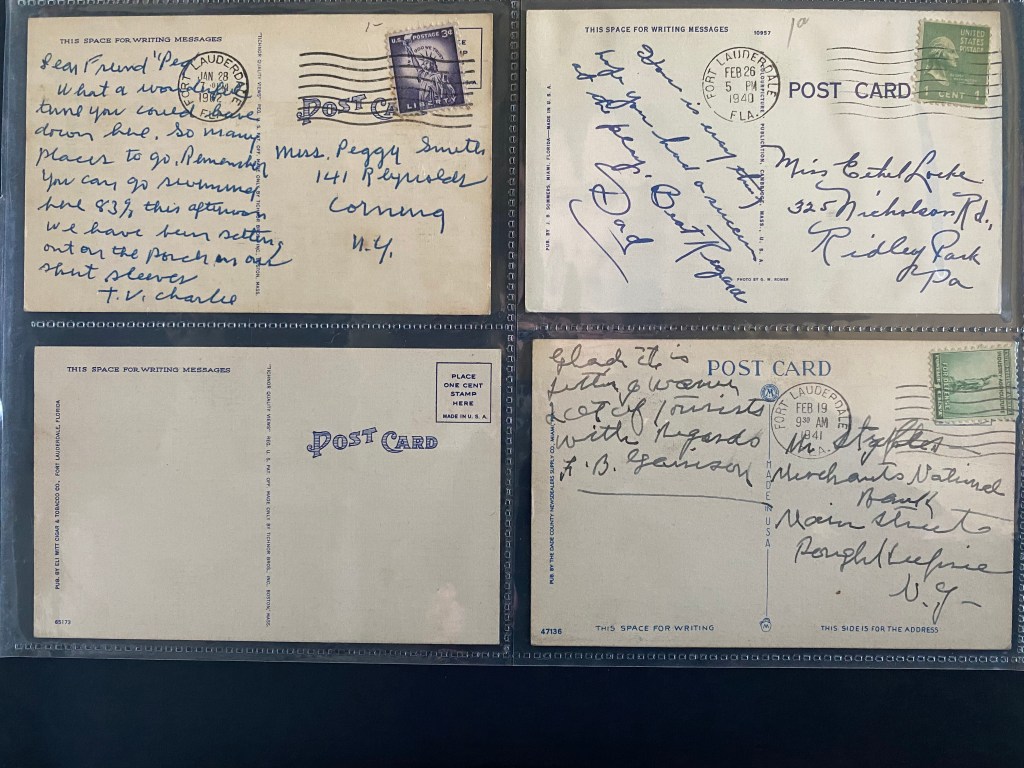 THIS SPACE FOR WRITING MESSAGES
Dear Friend "Peg"
What a wonderful
time you could have
down here. So many
places to go. Remember
you can go swimming
here 83% this afternoon
We have been setting
out on the porch in our
shirt sleeves
T.V. Charlie
FORT LAUDERDALE
JAN 28
FLA.
POST CARD
U.S. POSTAGE 3¢
LIBERTY
Miss. Peggy Smith
141 Reynolds
Corning
N.Y.
TICHNOR QUALITY VIEWS
THIS SPACE FOR WRITING MESSAGES
10957
Hope you had a success
at the play.
Best Regard
Dad
PUB. BY J. B. SOMMERS, MIAMI, FLORIDA—MADE IN U.S.A.
FORT LAUDERDALE
FEB 26
5 PM
1940
FLA.
POST CARD
UNITED
STATES
POSTAGE
1 CENT 1
Miss Ethel Locke
325 Nicholson Rd.,
Ridley Park
Pa
THIS SPACE FOR WRITING MESSAGES
PUB. BY ELI WITT CIGAR & TOBACCO CO., FORT LAUDERDALE, FLORIDA
65173
TICHNOR QUALITY VIEWS" REG. U. S. PAT. OFF. MADE ONLY BY TICHNOR BROS., INC., BOSTON, MASS.
POST CARD
PLACE
ONE CENT
STAMP
HERE
MADE IN U.S.A.
Glad it is
getting warm
Lot of Tourists
with Regards
F. B. Garrison
PUB BY THE DADE COUNTY NEWSDEALERS SUPPLY CO., MIAMI,
47136
THIS SPACE FOR WRITING
POST CARD
MADE IN USA
FORT LAUDERDALE
FEB 19
9 30 AM
1941
Merchants National
Bank
Main Street
Poughkeepsie
N.Y-
THIS SIDE IS FOR THE ADDRESS